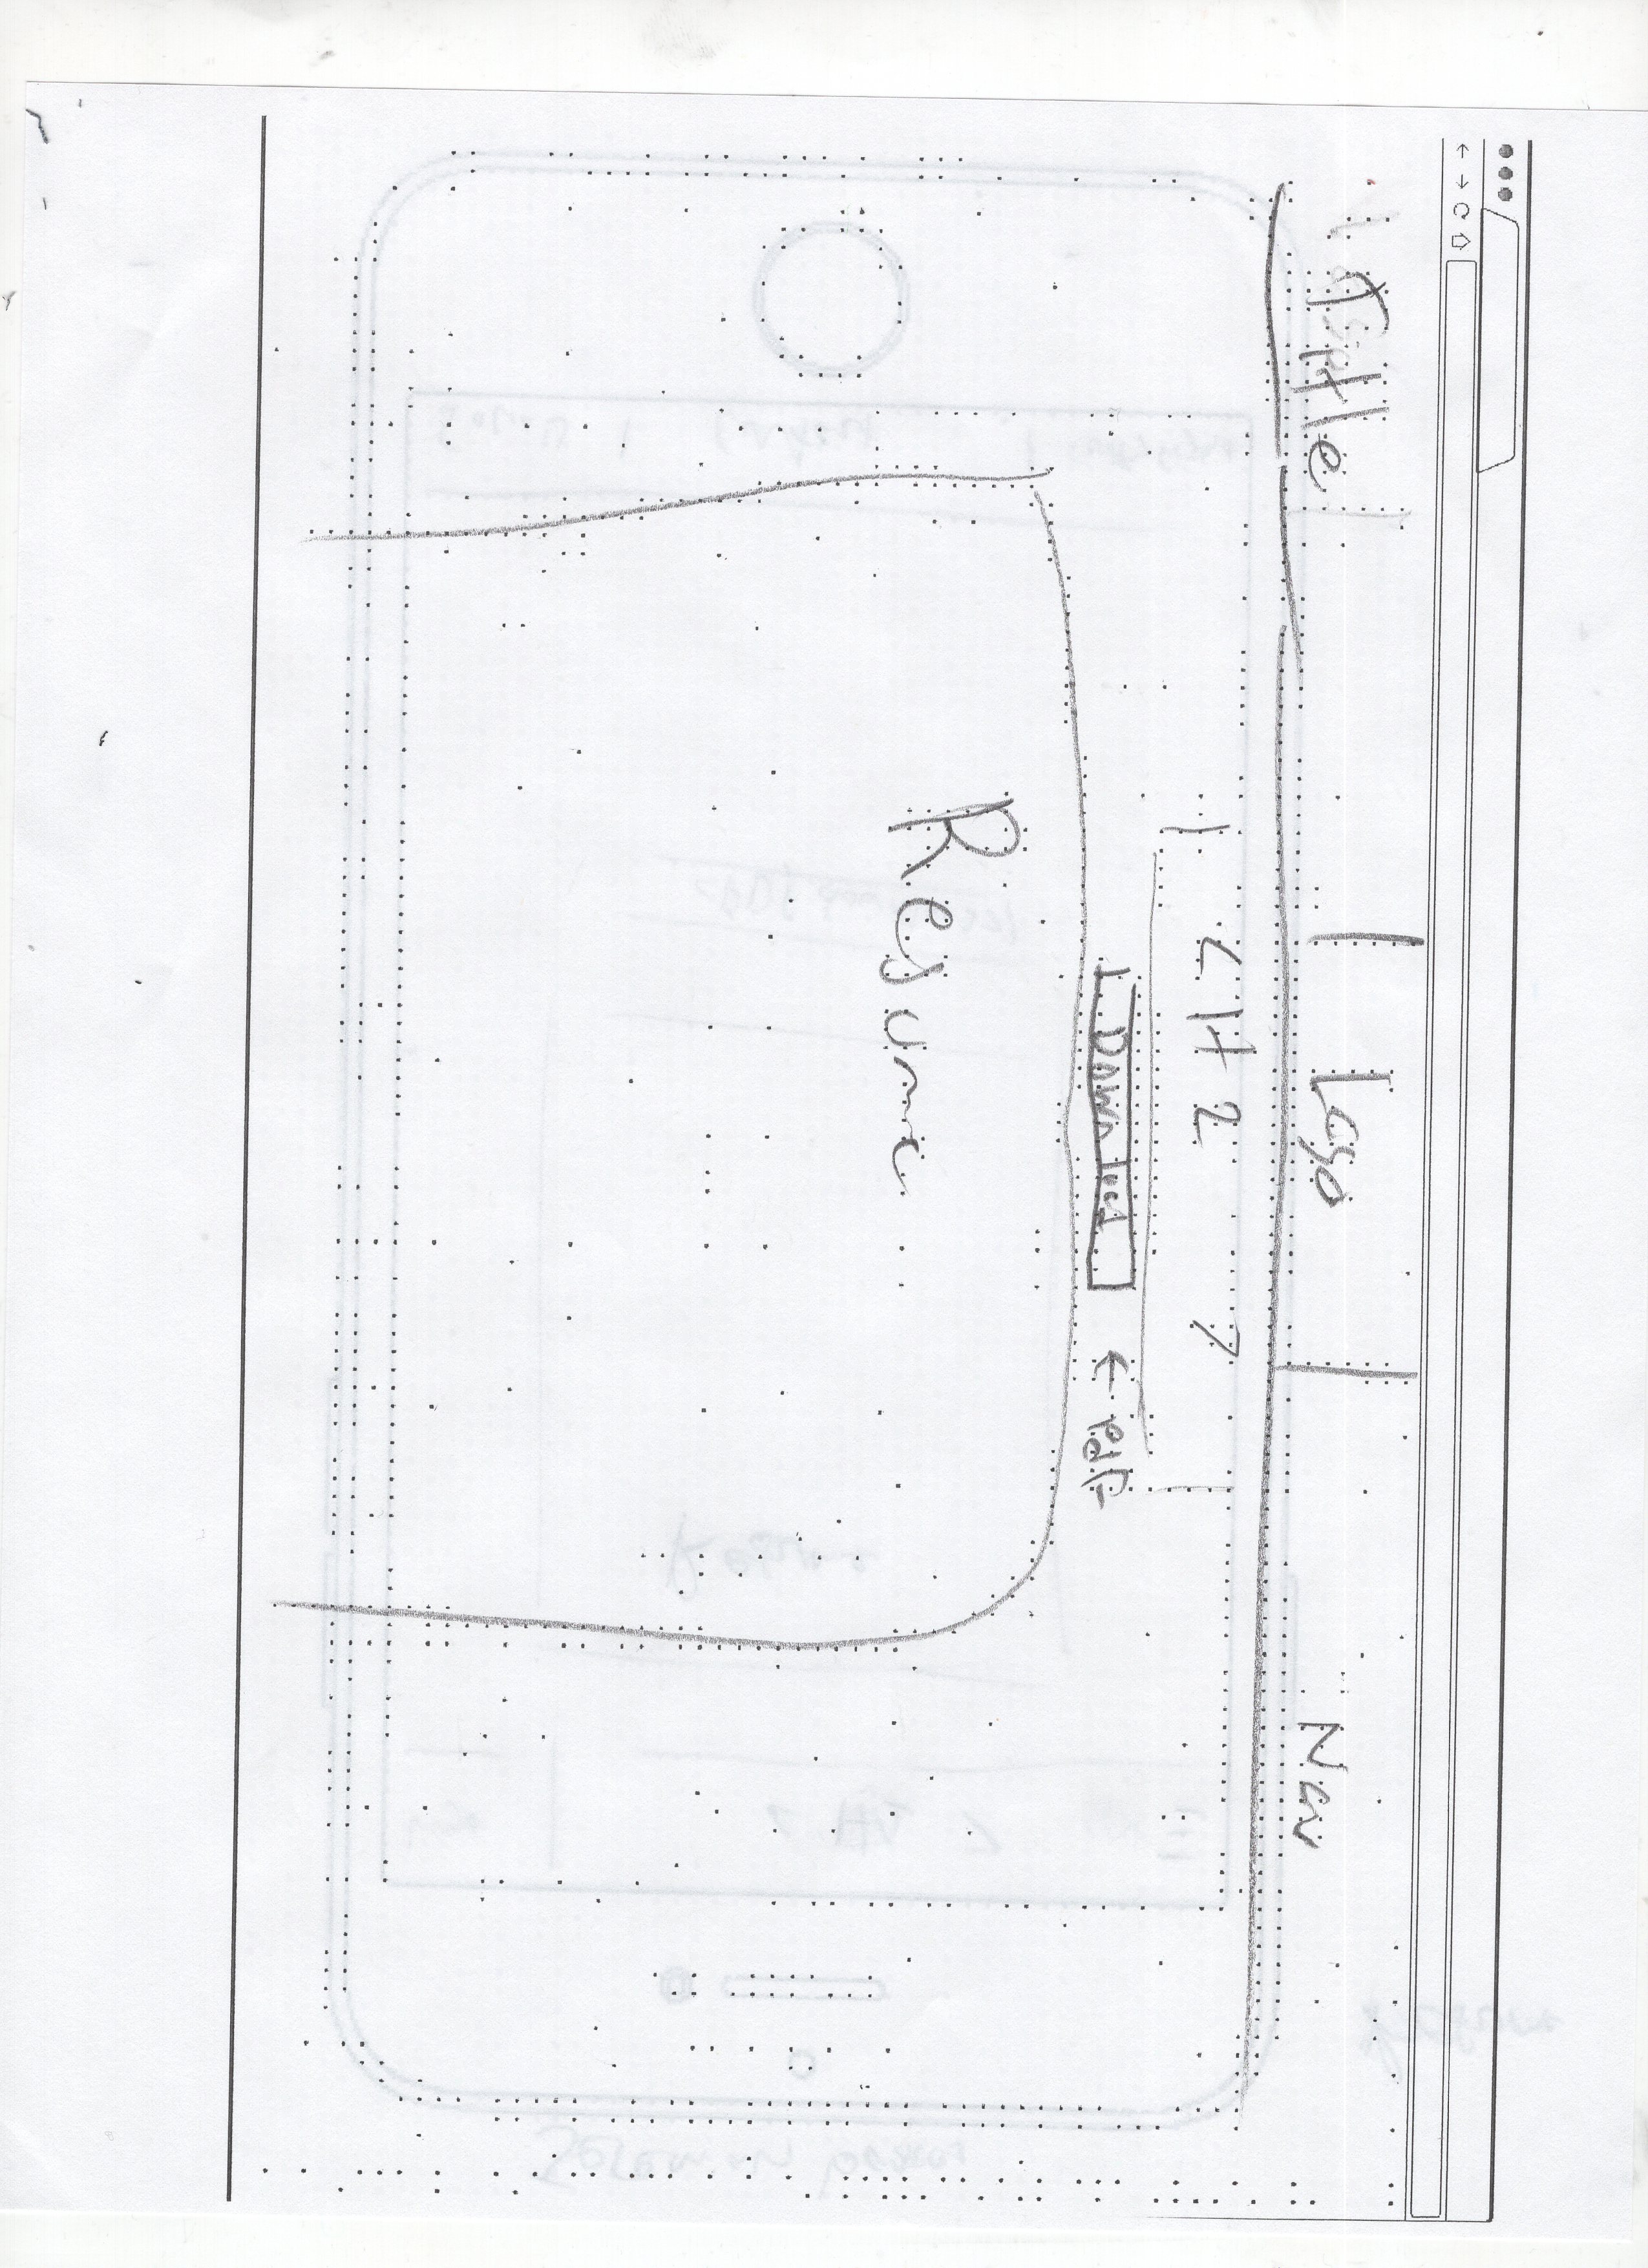 Title Logo Nav
< H2 >
Download ← Pdf
Resume